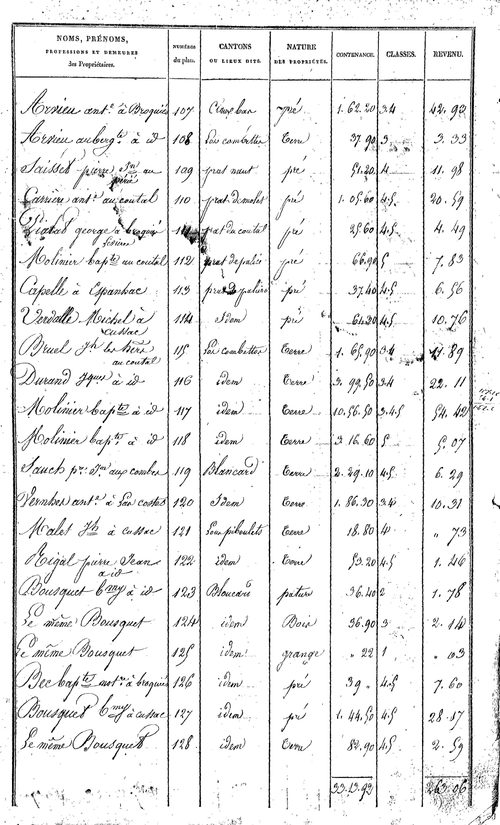 NOMS, PRÉNOMS, PROFESSIONS ET DEMEURES des Propriétaires. NUMÉROS du plan. CANTONS OU LIEUX DITS. NATURE DES PROPRIÉTÉS. CONTENANCE. CLASSES. REVENU.
Arvieu ant.e à Broquiés 107 pré 1. 62. 20 3.4 42. 93
Arvieu auberg.te à id 108 Las combettes terre 37. 90 3 3. 33
Saisset pierre Jn au 109 prat naut pré 51. 20 4 11. 98
Carriere ant.e au coutal 110 pré 1. 05. 60 4.5 20. 59
Vialad george à broquiés 111 prat du coutal pré 25. 60 4.5 4. 49
Molinier bap.te au coutal 112 pré 66. 90 5 7. 83
Capelle à Espanhac 113 pré 37. 40 4.5 6. 56
Verdalle Michel à cussac 114 Idem pré 61. 20 4.5 10. 76
Bruel Jh les hers au coutal 115 Las combettes terre 1. 65. 90 3.4 11. 89
Durand Jques à id 116 idem terre 3. 99. 50 3.4 22. 11
Molinier bap.te à id 117 idem terre 10. 56. 50 3.4.5 54. 42
Molinier bap.te à id 118 idem terre 3. 16. 60 5 5. 07
aux combes 119 Blancard terre 2. 49. 10 4.5 6. 29
Vernhes ant.e à Las costes 120 Idem terre 1. 86. 30 3.4 10. 31
Malet Jh à cussac 121 Lous piboulets terre 18. 80 4 „ 73
Rigal pierre Jean à id 122 idem terre 53. 20 4.5 1. 46
Bousquet b.my à id 123 pature 36. 40 2 1. 78
Le même Bousquet 124 idem Bois 36. 90 3 2. 14
Le même Bousquet 125 idem grange „ 22 1 „ 03
Bec bap.te not.re à broquiés 126 idem pré 39 „ 4.5 7. 60
Bousquet b.my à cussac 127 idem pré 1. 44. 50 4.5 28. 17
Le même Bousquet 128 idem terre 82. 90 4.5 2. 59
33. 13. 93 263. 06